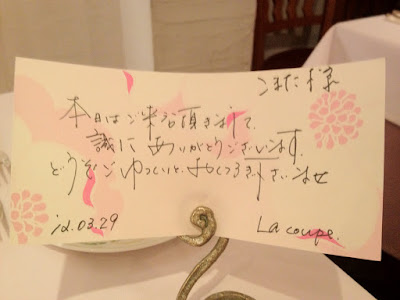 つまだ様
本日はご来店頂きまして、
誠にありがとうございます。
どうぞごゆっくりと、おくつろぎ下さいませ
12.03.29
La coupe.